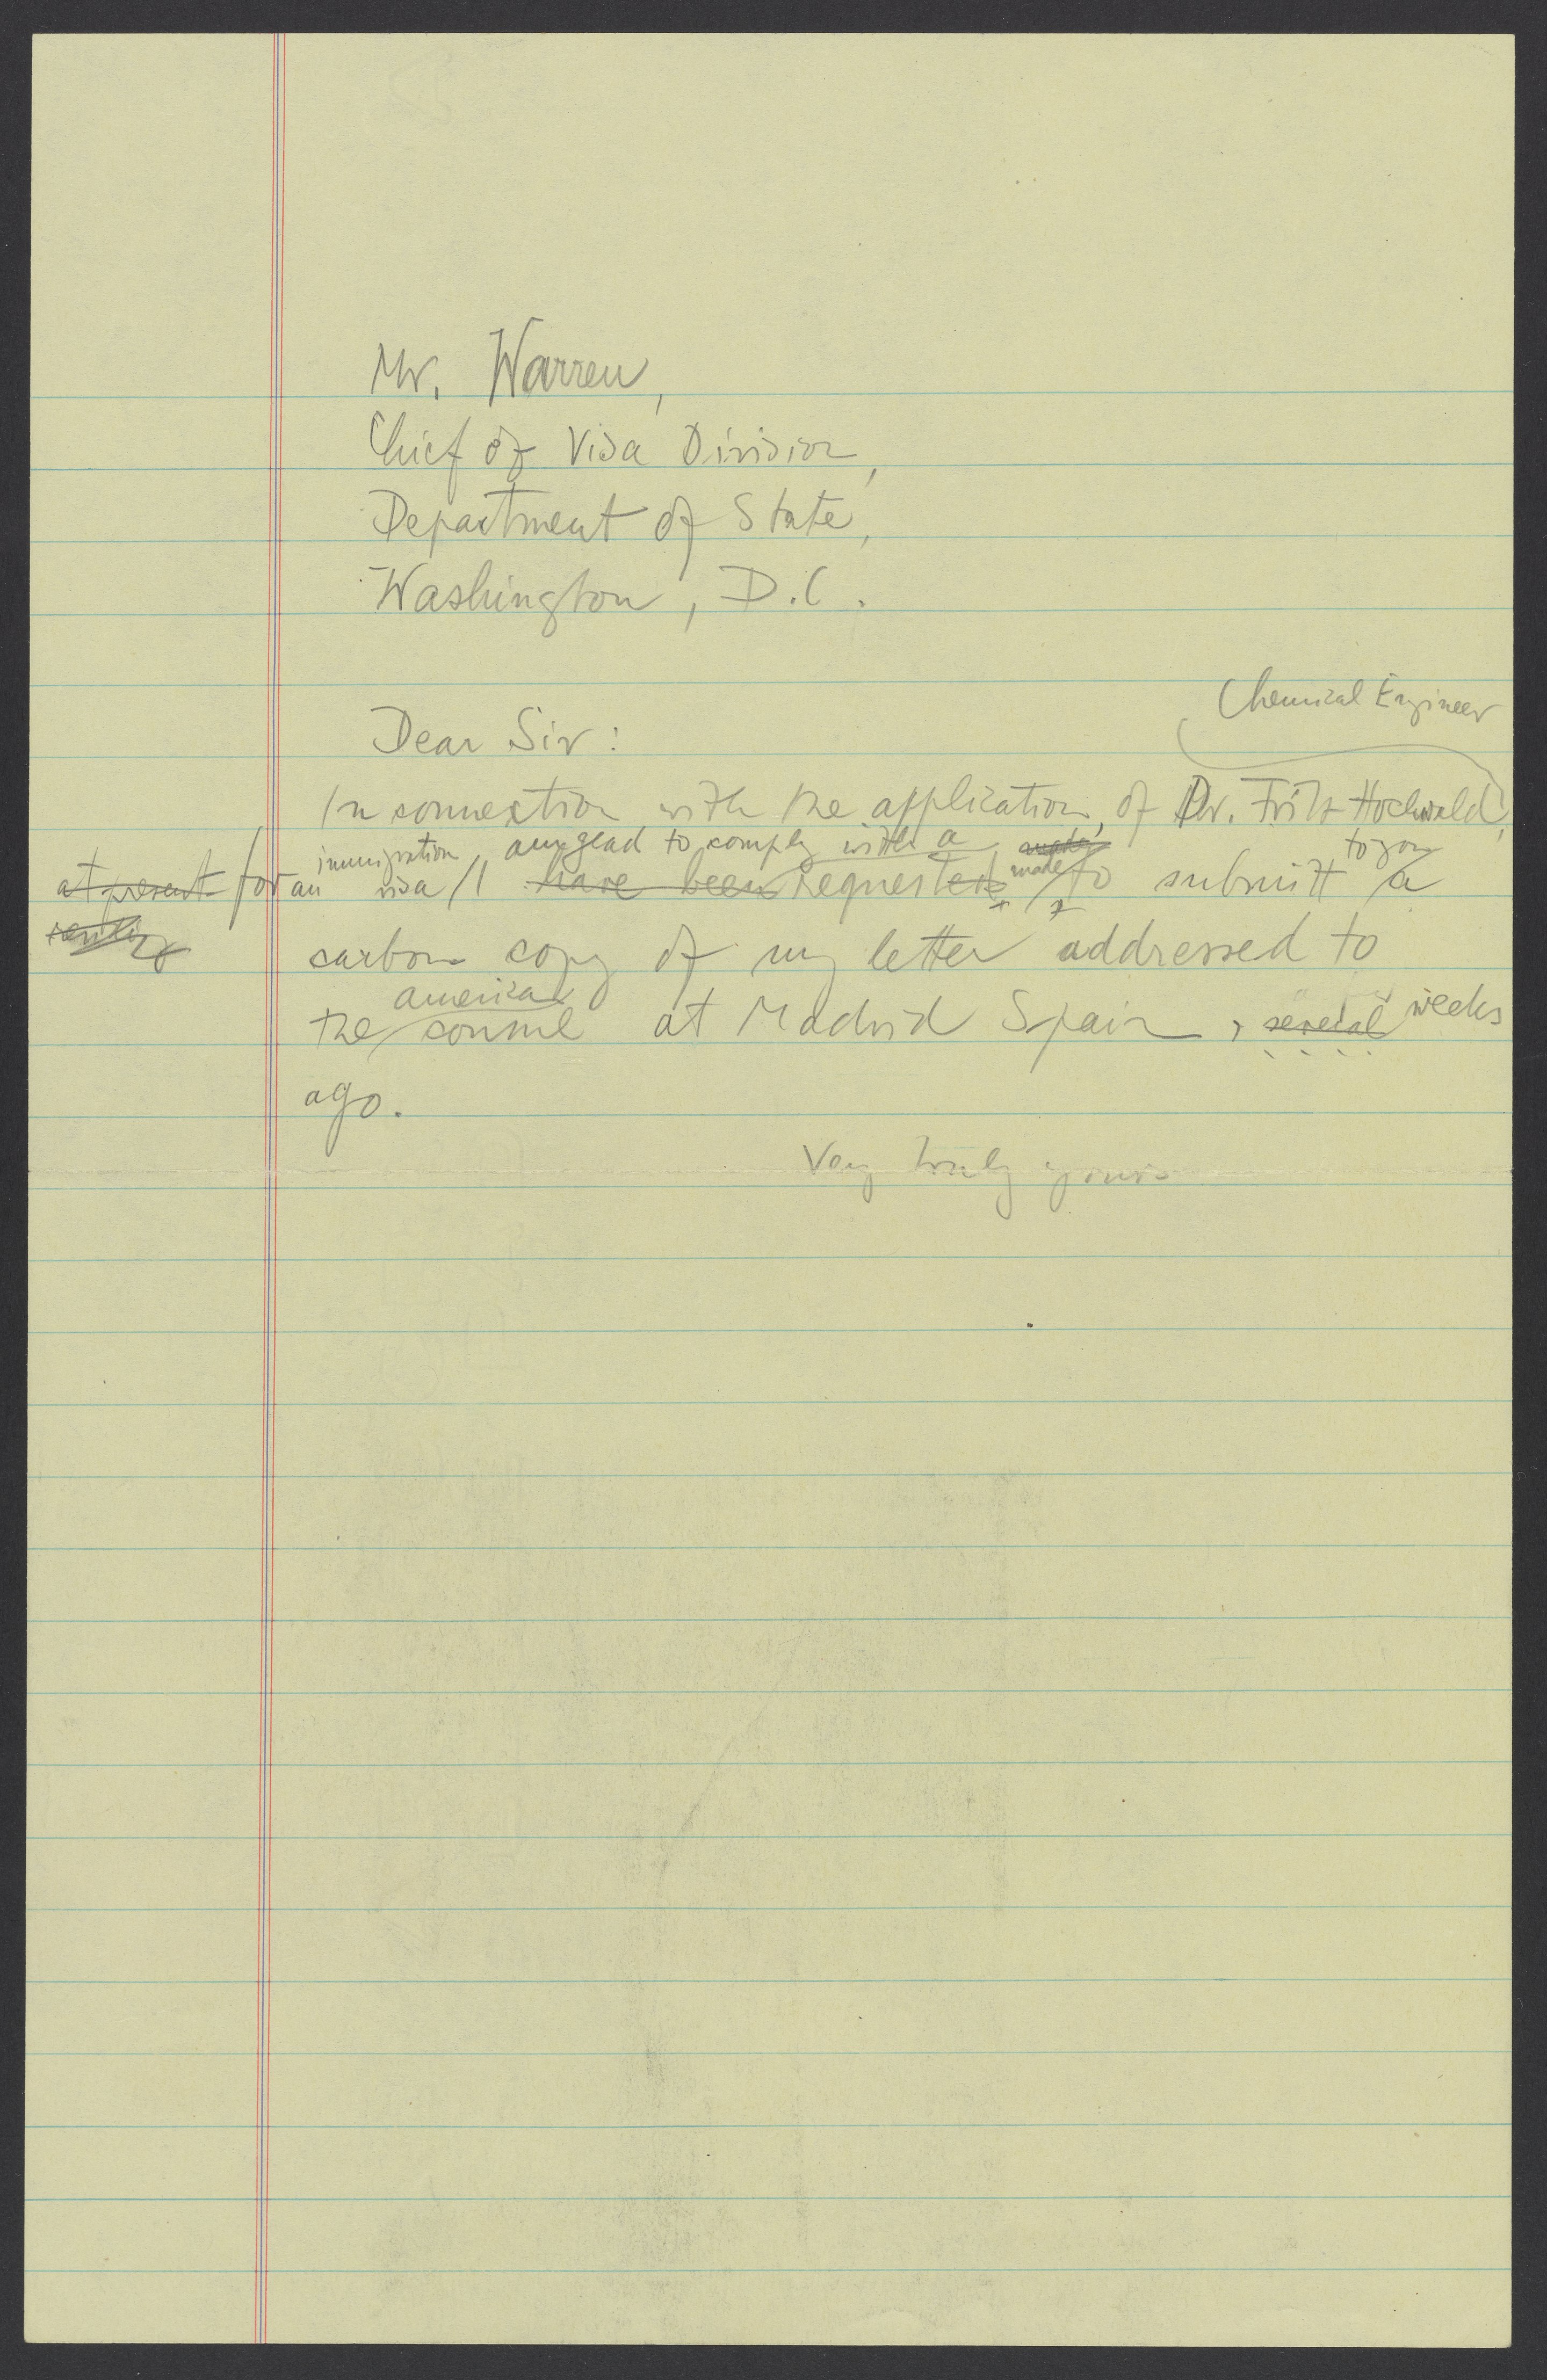 Mr. Warren,
Chief of Visa Division,
Department of State,
Washington, D.C.
Chemical Engineer
Dear Sir:
In connection with the application, of Dr. Fritz Hochwald,
immigration, am glad to comply with a made to you
at present for an visa / I have been requested made to submitt a
carbon copy of my letter addressed to
american
the consul at Madrid Spain, several weeks
ago.
Very truly yours